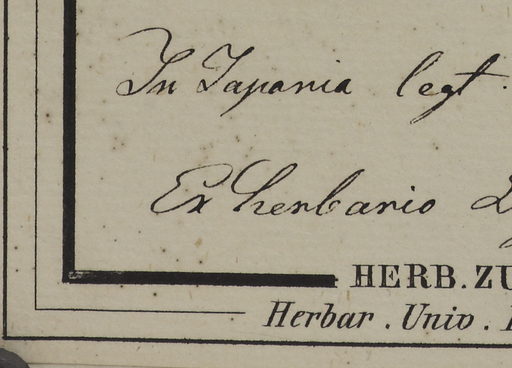 In Japania legt.
Ex herbario
HERB. ZU
Herbar. Univ.